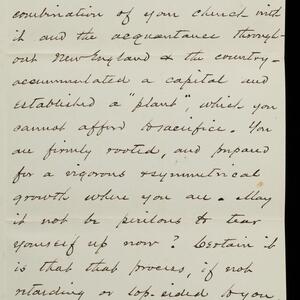 combination of your church with
it and the acquantance through-
out New England & the country -
accummulated a capital and
established a "plant", which you
cannot afford to sacrifice. You
are firmly rooted, and prepared
for a vigorous & symmetrical
growth where you are. May
it not be perilous to tear
yourself up now? Certain it
is that that process, if not
retarding or lop-sided to you